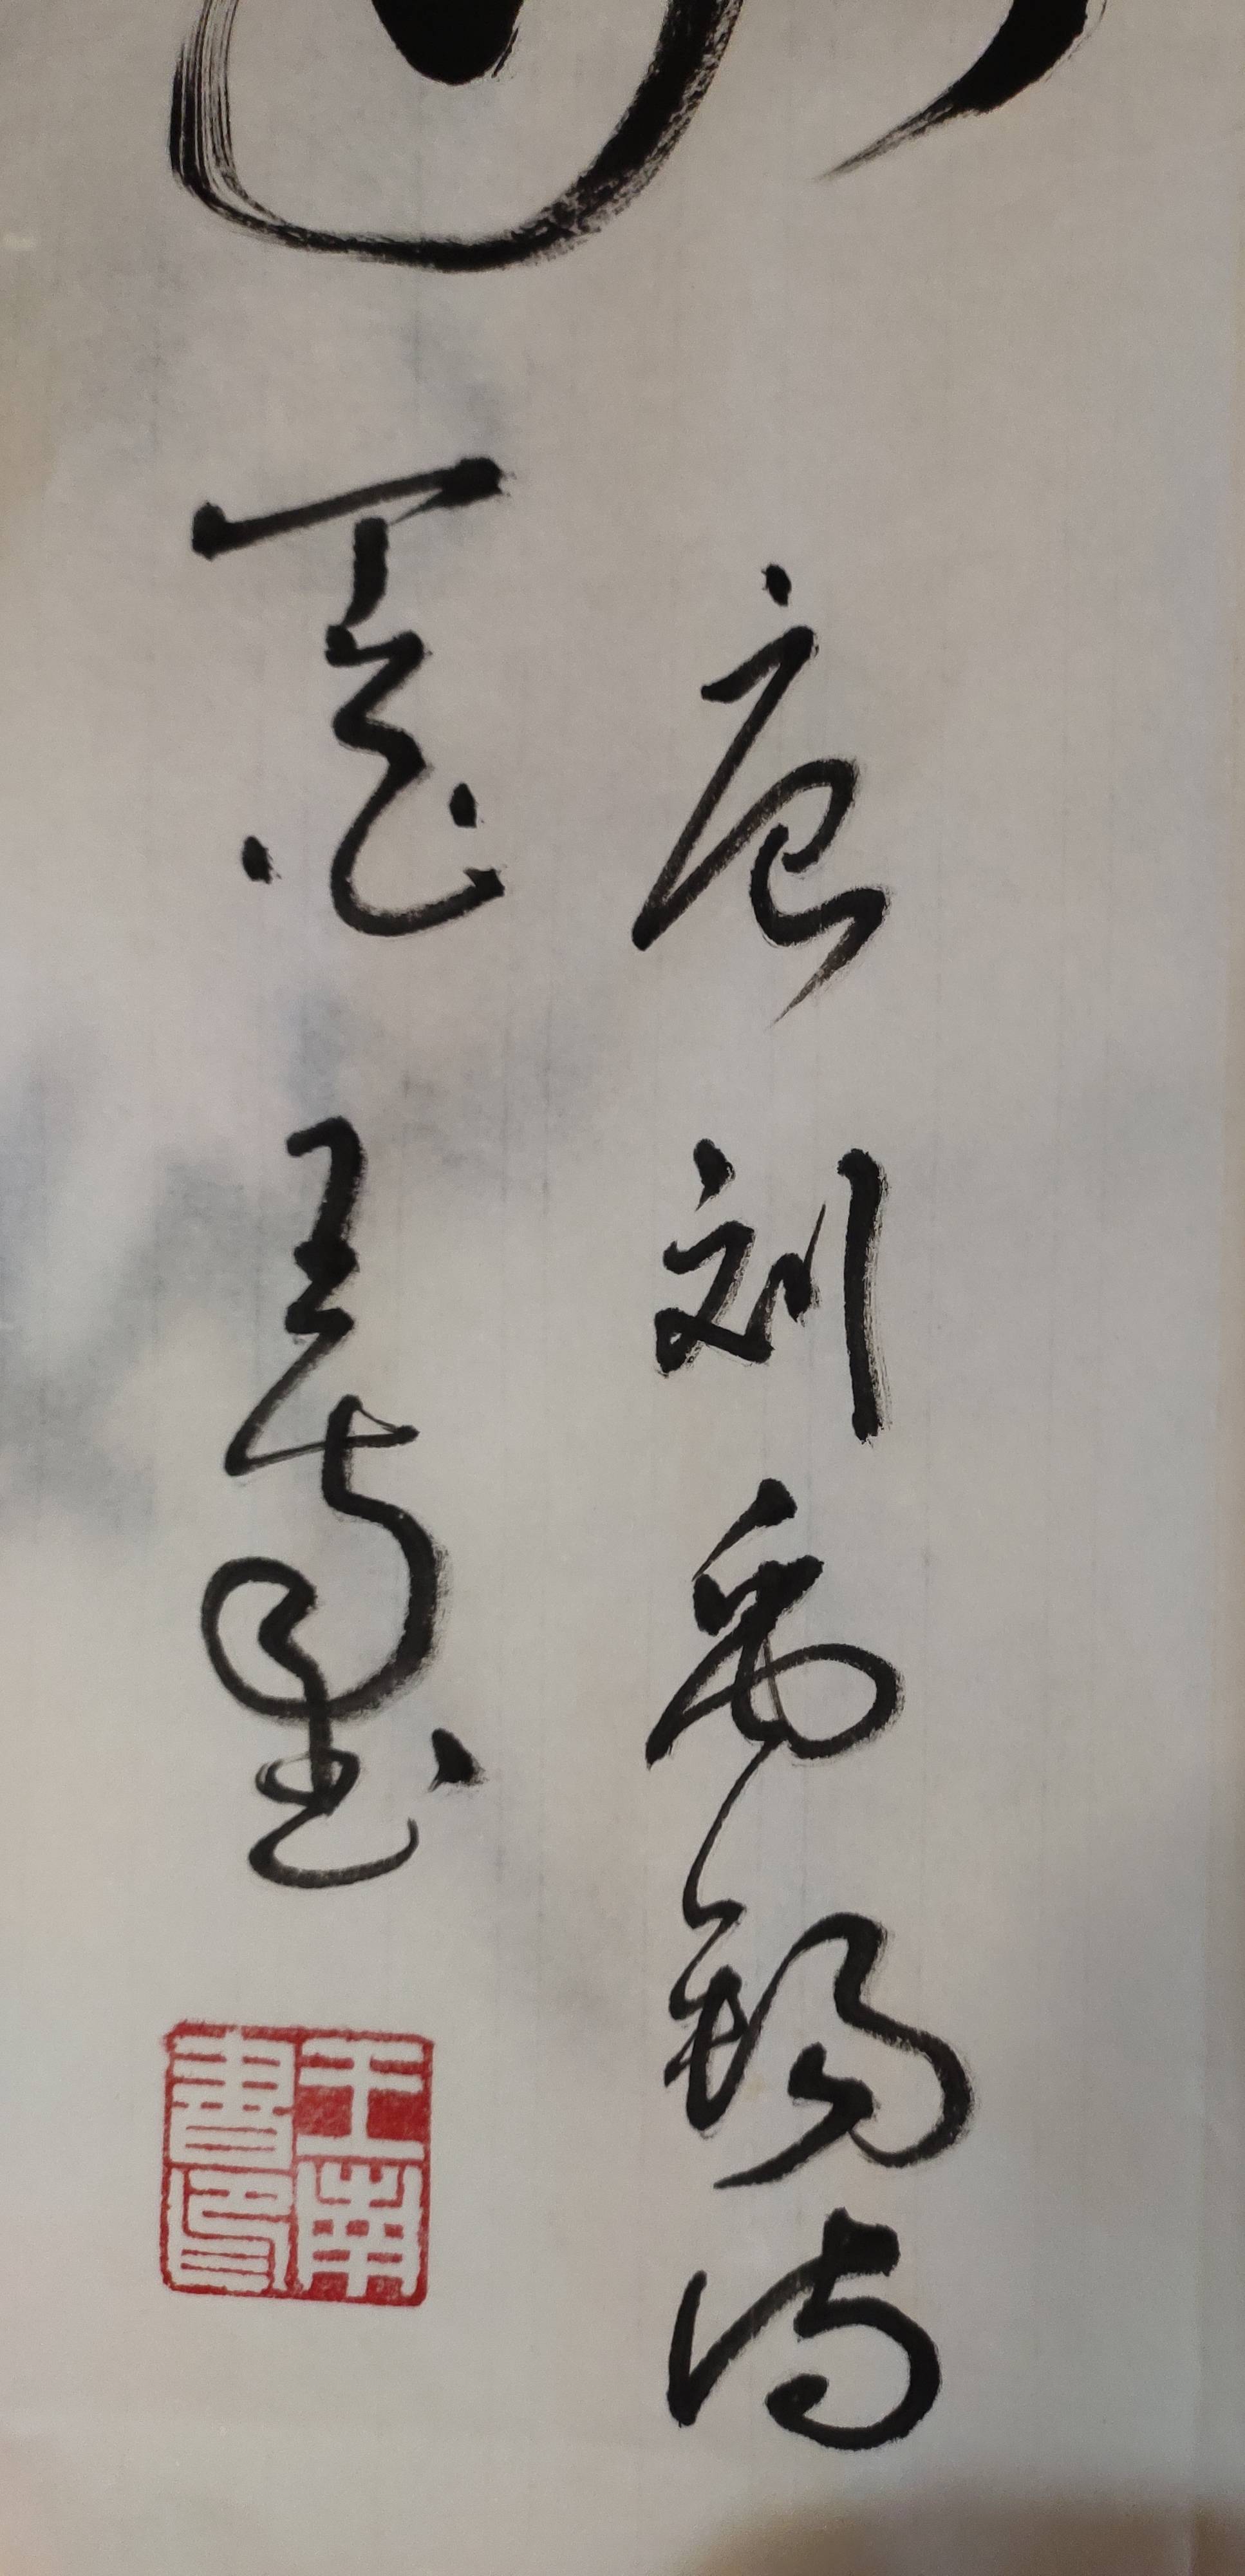 唐刘禹锡诗
王南书
王南書印